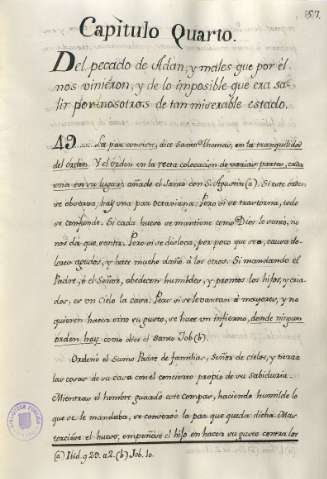 157.
Capitulo Quarto.
Del pecado de Adan, y males que por èl
nos vinieron, y de lo imposible que era sa-
lir por nosotros de tan miserable estado.
49. La paz consiste, dice santo Thomas, en la tranquilidad
del òrden. Y el òrden en la recta colocacion de varias partes, cada
una en su lugar, añade el Santo con S. Agustin (a). Si este òrden
se observa, hay una paz octaviana. Pero si se trastorna, todo
se confunde. Si cada hueso se mantiene como Dios le
no da que sentir. Pero si se disloca, por poco que sea, causa do-
lores agudos, y hace mucho daño à los otros. Si mandando el
Padre, ò el Señor, obedecen humildes, y prontos los hijos, y cria-
dos, es un Cielo la casa. Pero si se levantan à mayores, y no
quieren hacer sino su gusto, se hace un infierno, donde ningun
orden, hay como dice el santo Job (b).
Ordenò el Sumo Padre de familias, Señor de cielos, y tierra
las cosas de su casa con el concierto propio de su sabiduria.
Mientras el hombre guardò este compas, haciendo humilde lo
que se le mandaba, se conservò la paz que queda dicha. Mas
torciose el hueso, empeñose el hijo en hacer su gusto contra los
(a) Ibid. q. 29. a. 2. (b) Job. 10.